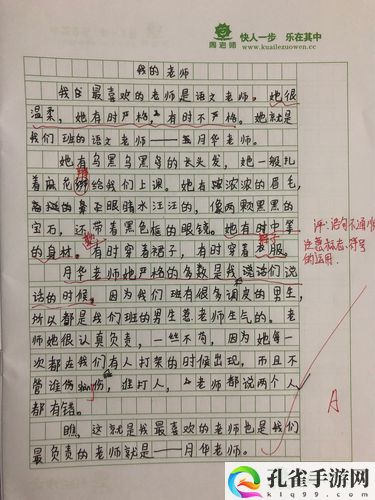 快人一步 乐在其中
周老师
www.kuailezuowen.cc
我的老师
我的最喜欢的老师是语文老师。她很
温柔,她有时严格,有时不严格。她就是
我们班的语文老师——王月华老师。
她有乌黑乌黑的长头发,她一般扎
着麻花辫给我们上课。她有浓浓的眉毛,
眼睛水汪汪的,像两颗黑黑的
宝石,还带着黑色框的眼镜。她有时中等
的身材。有时穿着裙子,有时穿着衣服。
月华老师她严格的多数是我们说
话的时候。因为我们班有很多调皮的男生,
所以都是我们班的男生惹老师生气的。老
师她很认真负责,一丝不苟,因为她每一
次都在我们有人打架的时候出现,而且不
管谁伤shang伤,谁打人,老师都说两个人
都有错。
瞧,这就是我最喜欢的老师也是我们
最负责的老师就是——月华老师。
评:语句不通顺
注意标点、符号
的运用。
A
孔雀手游网